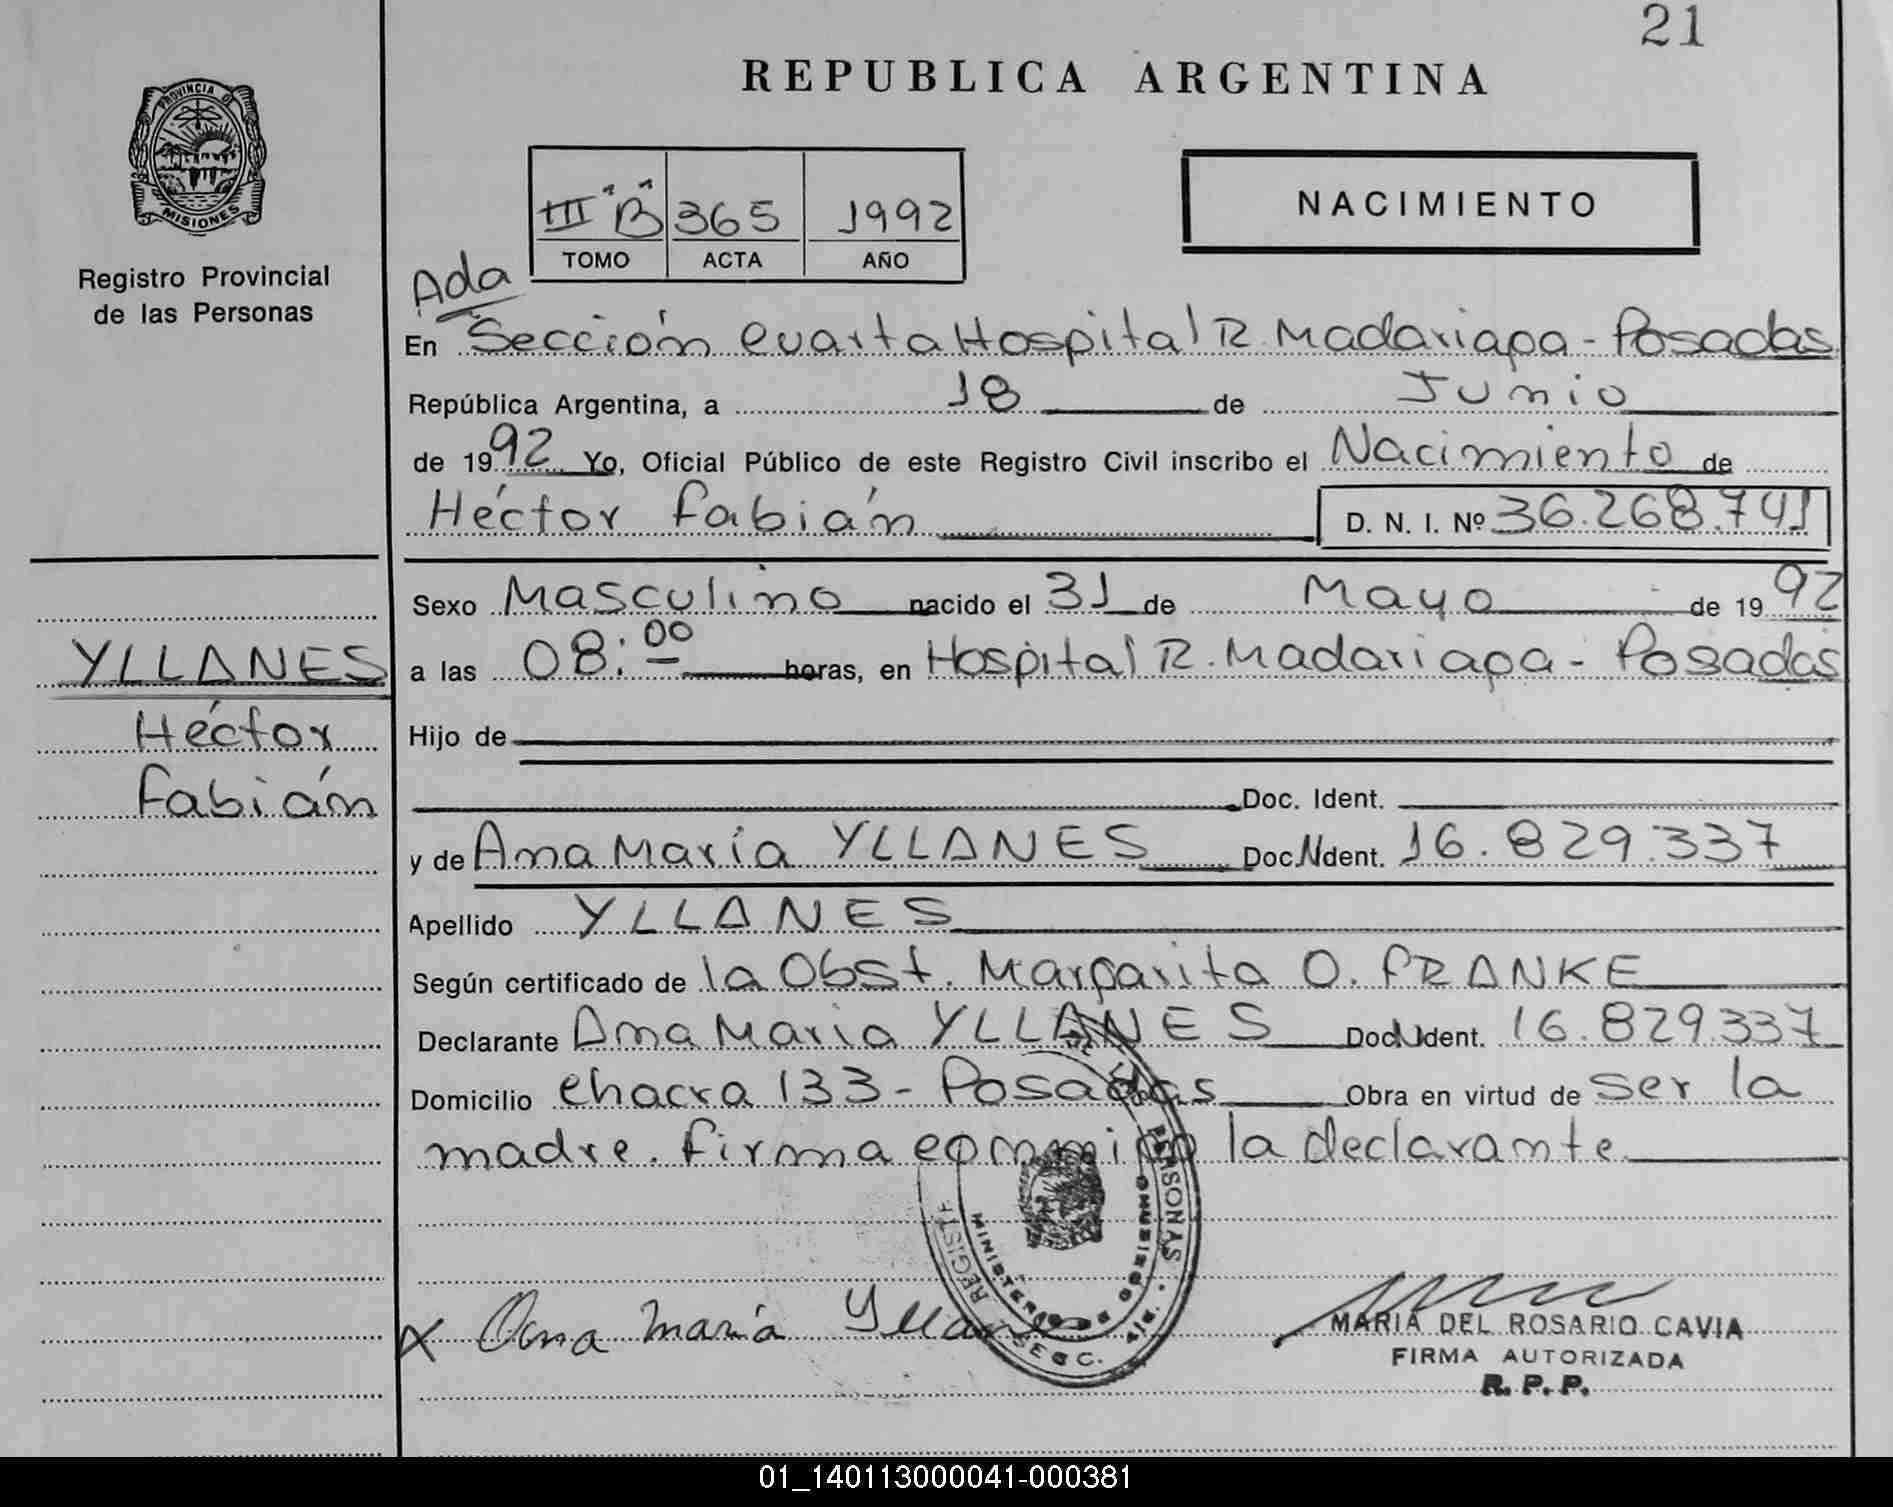 21
REPUBLICA ARGENTINA
PROVINCIA DE
MISIONES
Registro Provincial
de las Personas
III "B" 365 1992
TOMO ACTA AÑO
NACIMIENTO
Ada
En Sección Cuarta Hospital R. Madariaga - Posadas
República Argentina, a 18 de Junio
de 1992 Yo, Oficial Público de este Registro Civil inscribo el Nacimiento de
Héctor Fabián D. N. I. Nº 36.268.741
Sexo Masculino nacido el 31 de Mayo de 1992
YLLANES
a las 08:00 horas, en Hospital R. Madariaga - Posadas
Héctor
Hijo de
Fabián
Doc. Ident.
y de Ana María YLLANES Doc.N Ident. 16.829.337
Apellido YLLANES
Según certificado de la Obst. Margarita O. FRANKE
Declarante Ana María YLLANES Doc.N Ident. 16.829.337
Domicilio Chacra 133 - Posadas Obra en virtud de ser la
madre. Firma conmigo la declarante
PERSONAS
REGIST
MINISTERIO DE GOBIERNO
X Ana María Yllanes
MARIA DEL ROSARIO CAVIA
FIRMA AUTORIZADA
R. P. P.
01_140113000041-000381